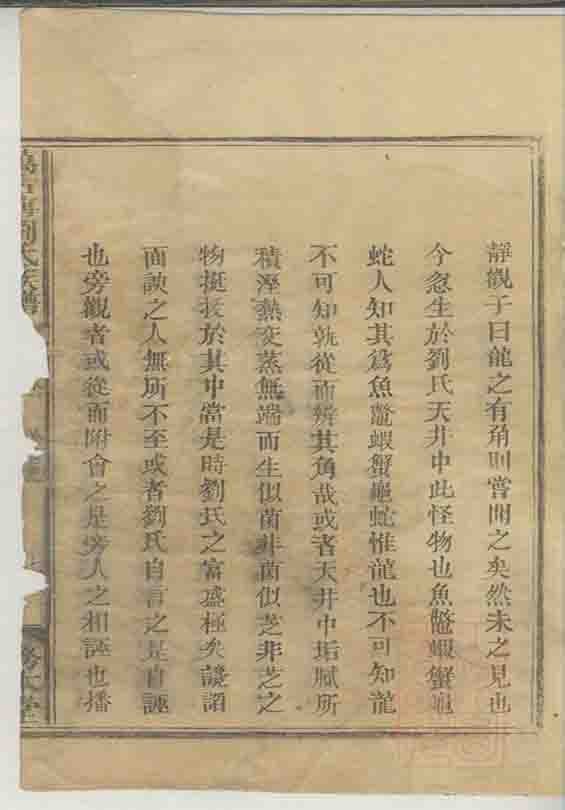 靜觀子曰龍之有角則嘗聞之矣然未之見也
今忽生於劉氏天井中此怪物也魚鼈蝦蟹龜
蛇人知其爲魚鼈蝦蟹龜蛇惟龍也不可知龍
不可知孰從而辨其角哉或者天井中垢膩所
積溼熱交蒸無端而生似菌非菌似芝非芝之
物挺拔於其中當是時劉氏之富盛極矣謟
面諛之人無所不至或者劉氏自言之是自誣
也旁觀者或從而附會之是旁人之相誣也播
劉氏族譜
堂